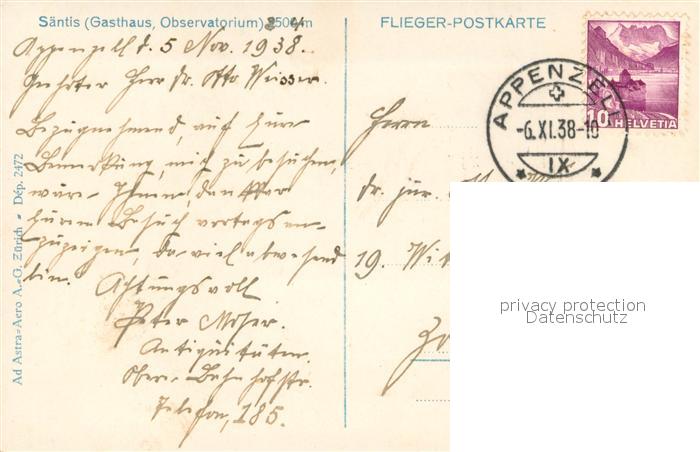 Säntis (Gasthaus, Observatorium) 2504 m
Appenzell d. 5 Nov. 1938.
Geehrter Herr Dr. Otto Weisser.
Bezugnehmend, auf Ihre
Bemerkung, mich zu besuchen,
wäre Ihnen, dankbar
Ihren Besuch vortags an-
zuzeigen, da viel abwesend
bin. Achtungsvoll
Peter Moser.
Antiquitäten
Obere-Bahnhofstr.
Telefon, 185.
Ad Astra-Aero A.-G. Zürich - Dép. 2472
FLIEGER-POSTKARTE
10 HELVETIA
APPENZELL
-6.XI.38-10
IX
Herrn
dr. jur.
19.
privacy protection
Datenschutz